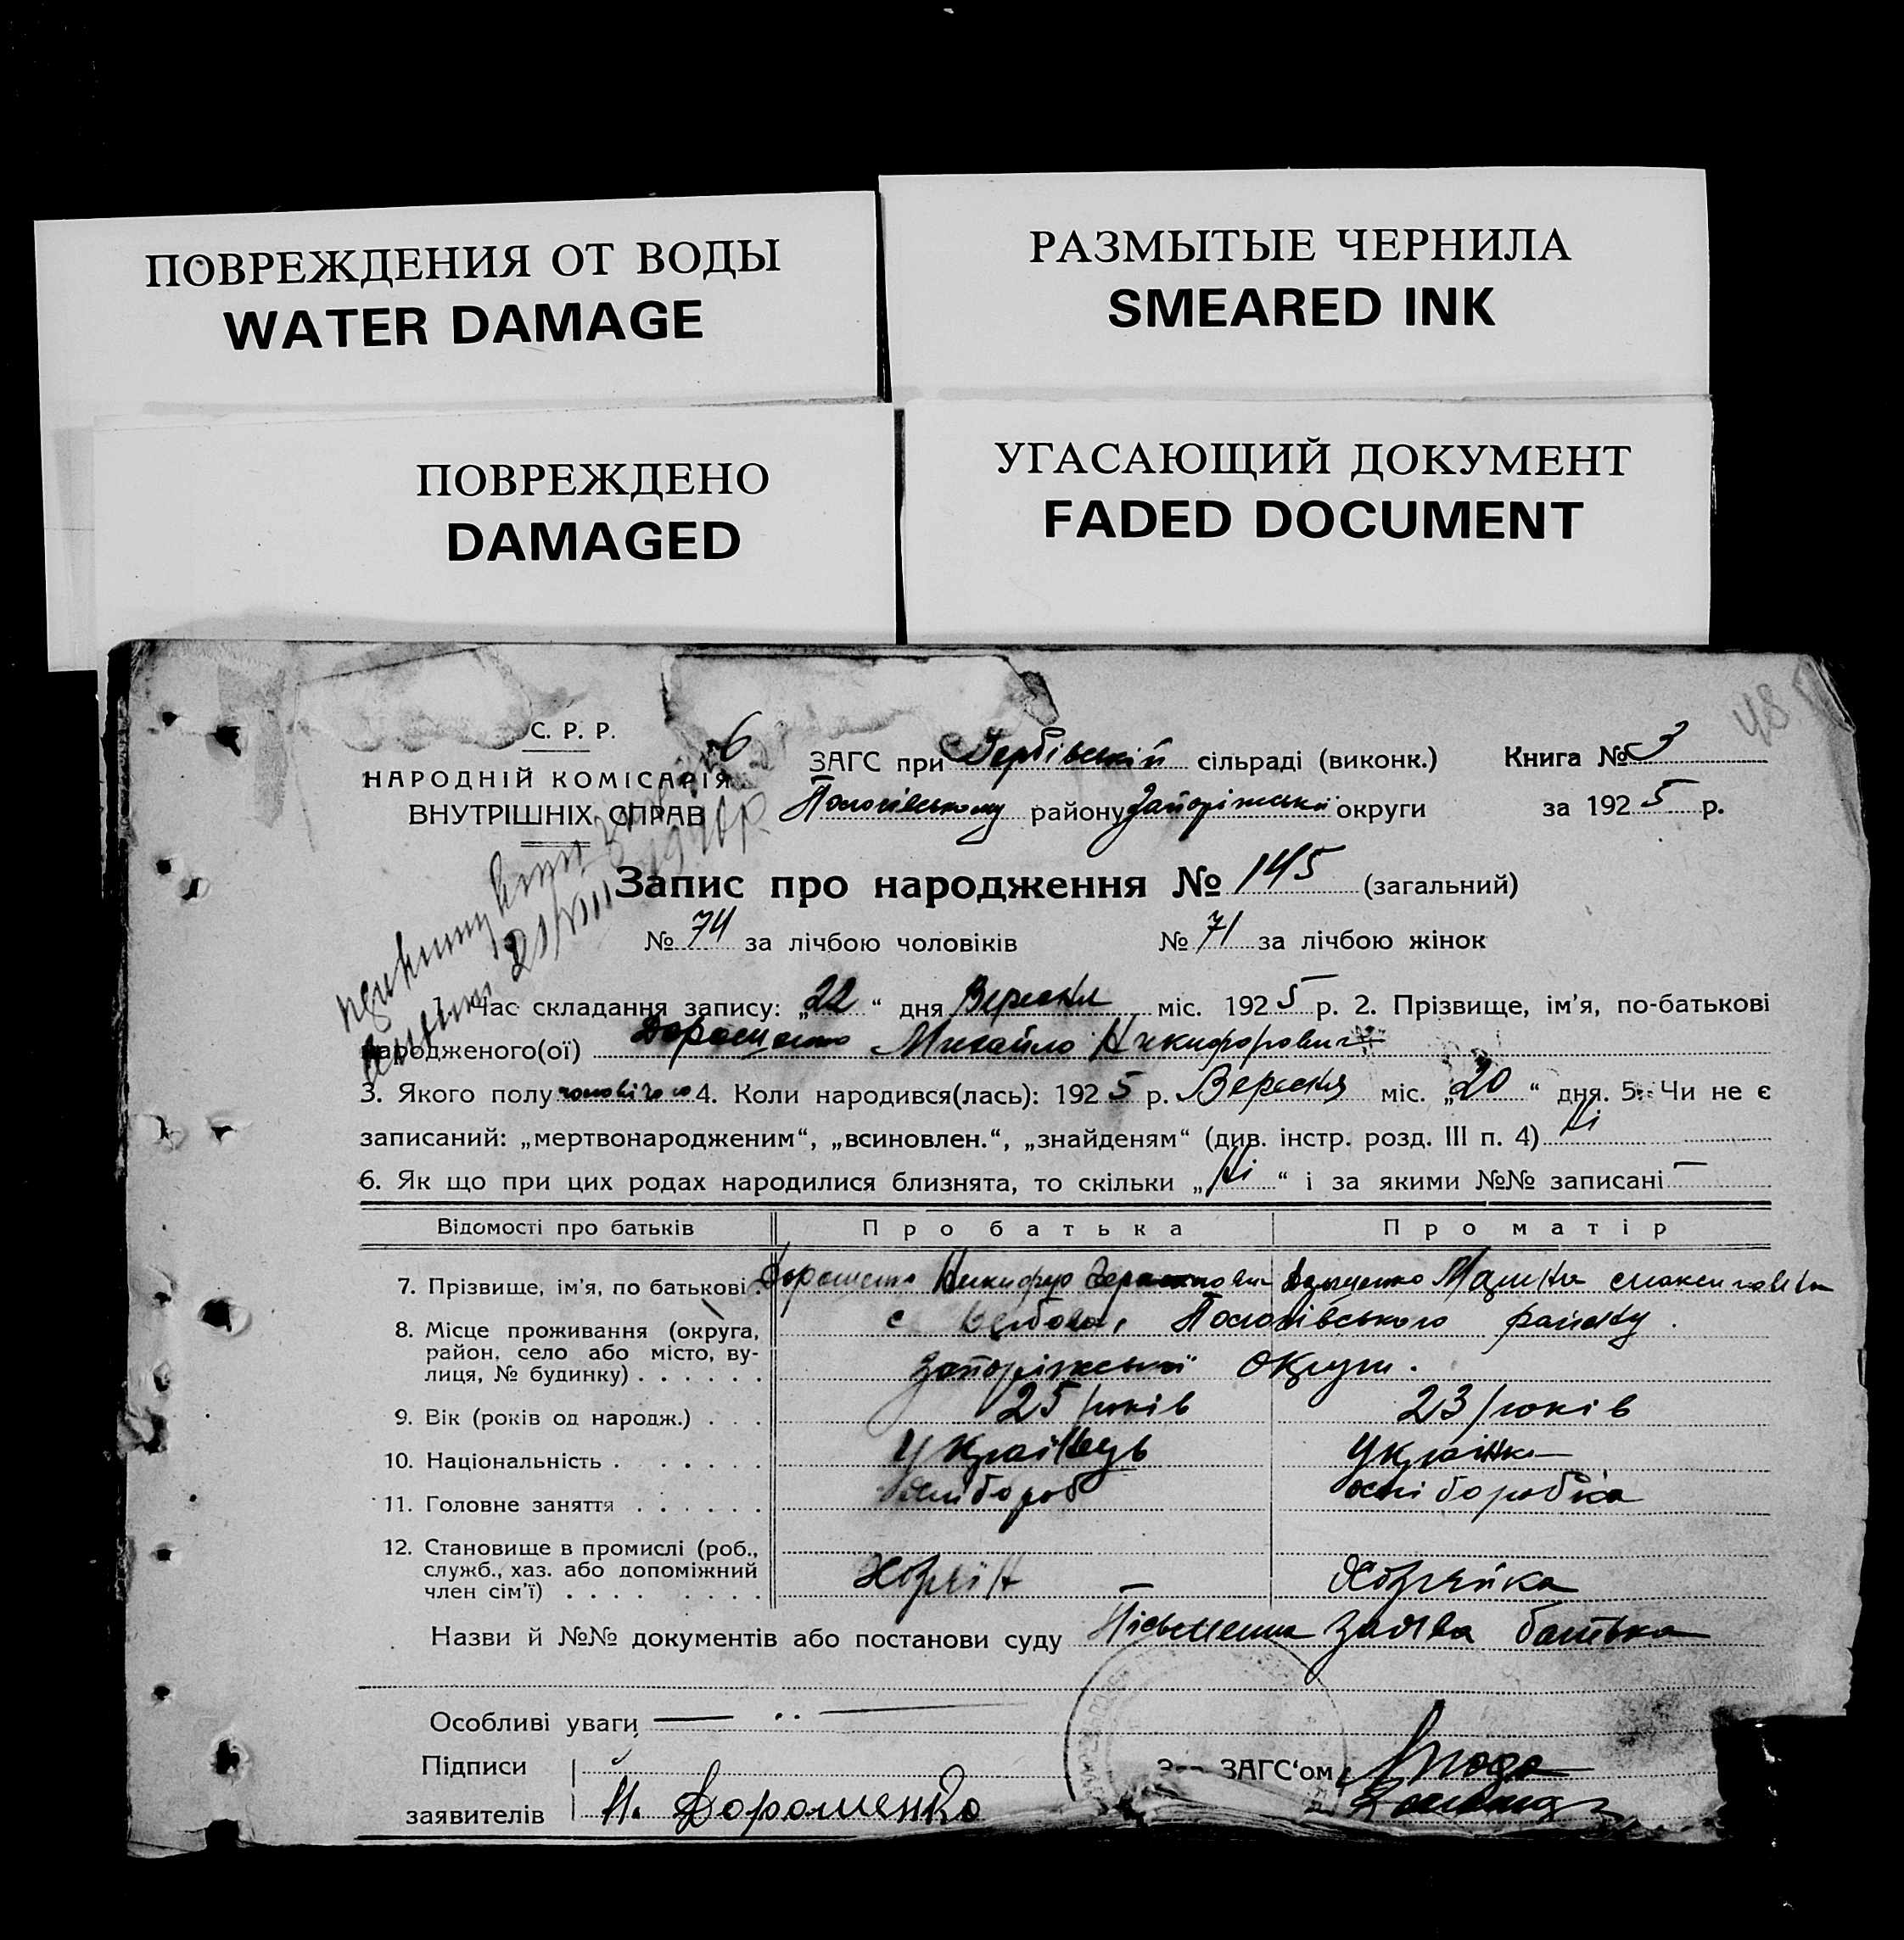 ПОВРЕЖДЕНИЯ ОТ ВОДЫ
WATER DAMAGE
РАЗМЫТЫЕ ЧЕРНИЛА
SMEARED INK
ПОВРЕЖДЕНО
DAMAGED
УГАСАЮЩИЙ ДОКУМЕНТ
FADED DOCUMENT
С. Р. Р.
НАРОДНІЙ КОМІСАРІЯ
ВНУТРІШНІХ СПРАВ
6
48
ЗАГС при Вербівській сільраді (виконк.) Книга № 3
Пологівському району Запоріжської округи за 1925 р.
Запис про народження № 145 (загальний)
№ 74 за лічбою чоловіків № 71 за лічбою жінок
21/VIII 1940р.
Час складання запису: „22“ дня Вересня міс. 1925 р. 2. Прізвище, ім'я, по-батькові
народженого(ої) Дорошенко Михайло Никифорович
3. Якого полу чоловічого 4. Коли народився(лась): 1925 р. Вересня міс. „20“ дня. 5. Чи не є
записаний: „мертвонародженим“, „всиновлен.“, „знайденям“ (див. інстр. розд. III п. 4) Ні
6. Як що при цих родах народилися близнята, то скільки „Ні“ і за якими №№ записані —
Відомості про батьків Про батька Про матір
7. Прізвище, ім'я, по батькові Дорошенко Никифор
8. Місце проживання (округа, район, село або місто, вулиця, № будинку) с Вербова, Пологівського району.
Запоріжської Округи.
9. Вік (років од народж.) 25 років 23 років
10. Національність Українець Українка
11. Головне заняття хлібороб хліборобка
12. Становище в промислі (роб., служб., хаз. або допоміжний член сім'ї) Хозяїн Хозяйка
Назви й №№ документів або постанови суду Письменна заява батька
Особливі уваги
Підписи
заявителів Н. Дорошенко
Зав. ЗАГС'ом